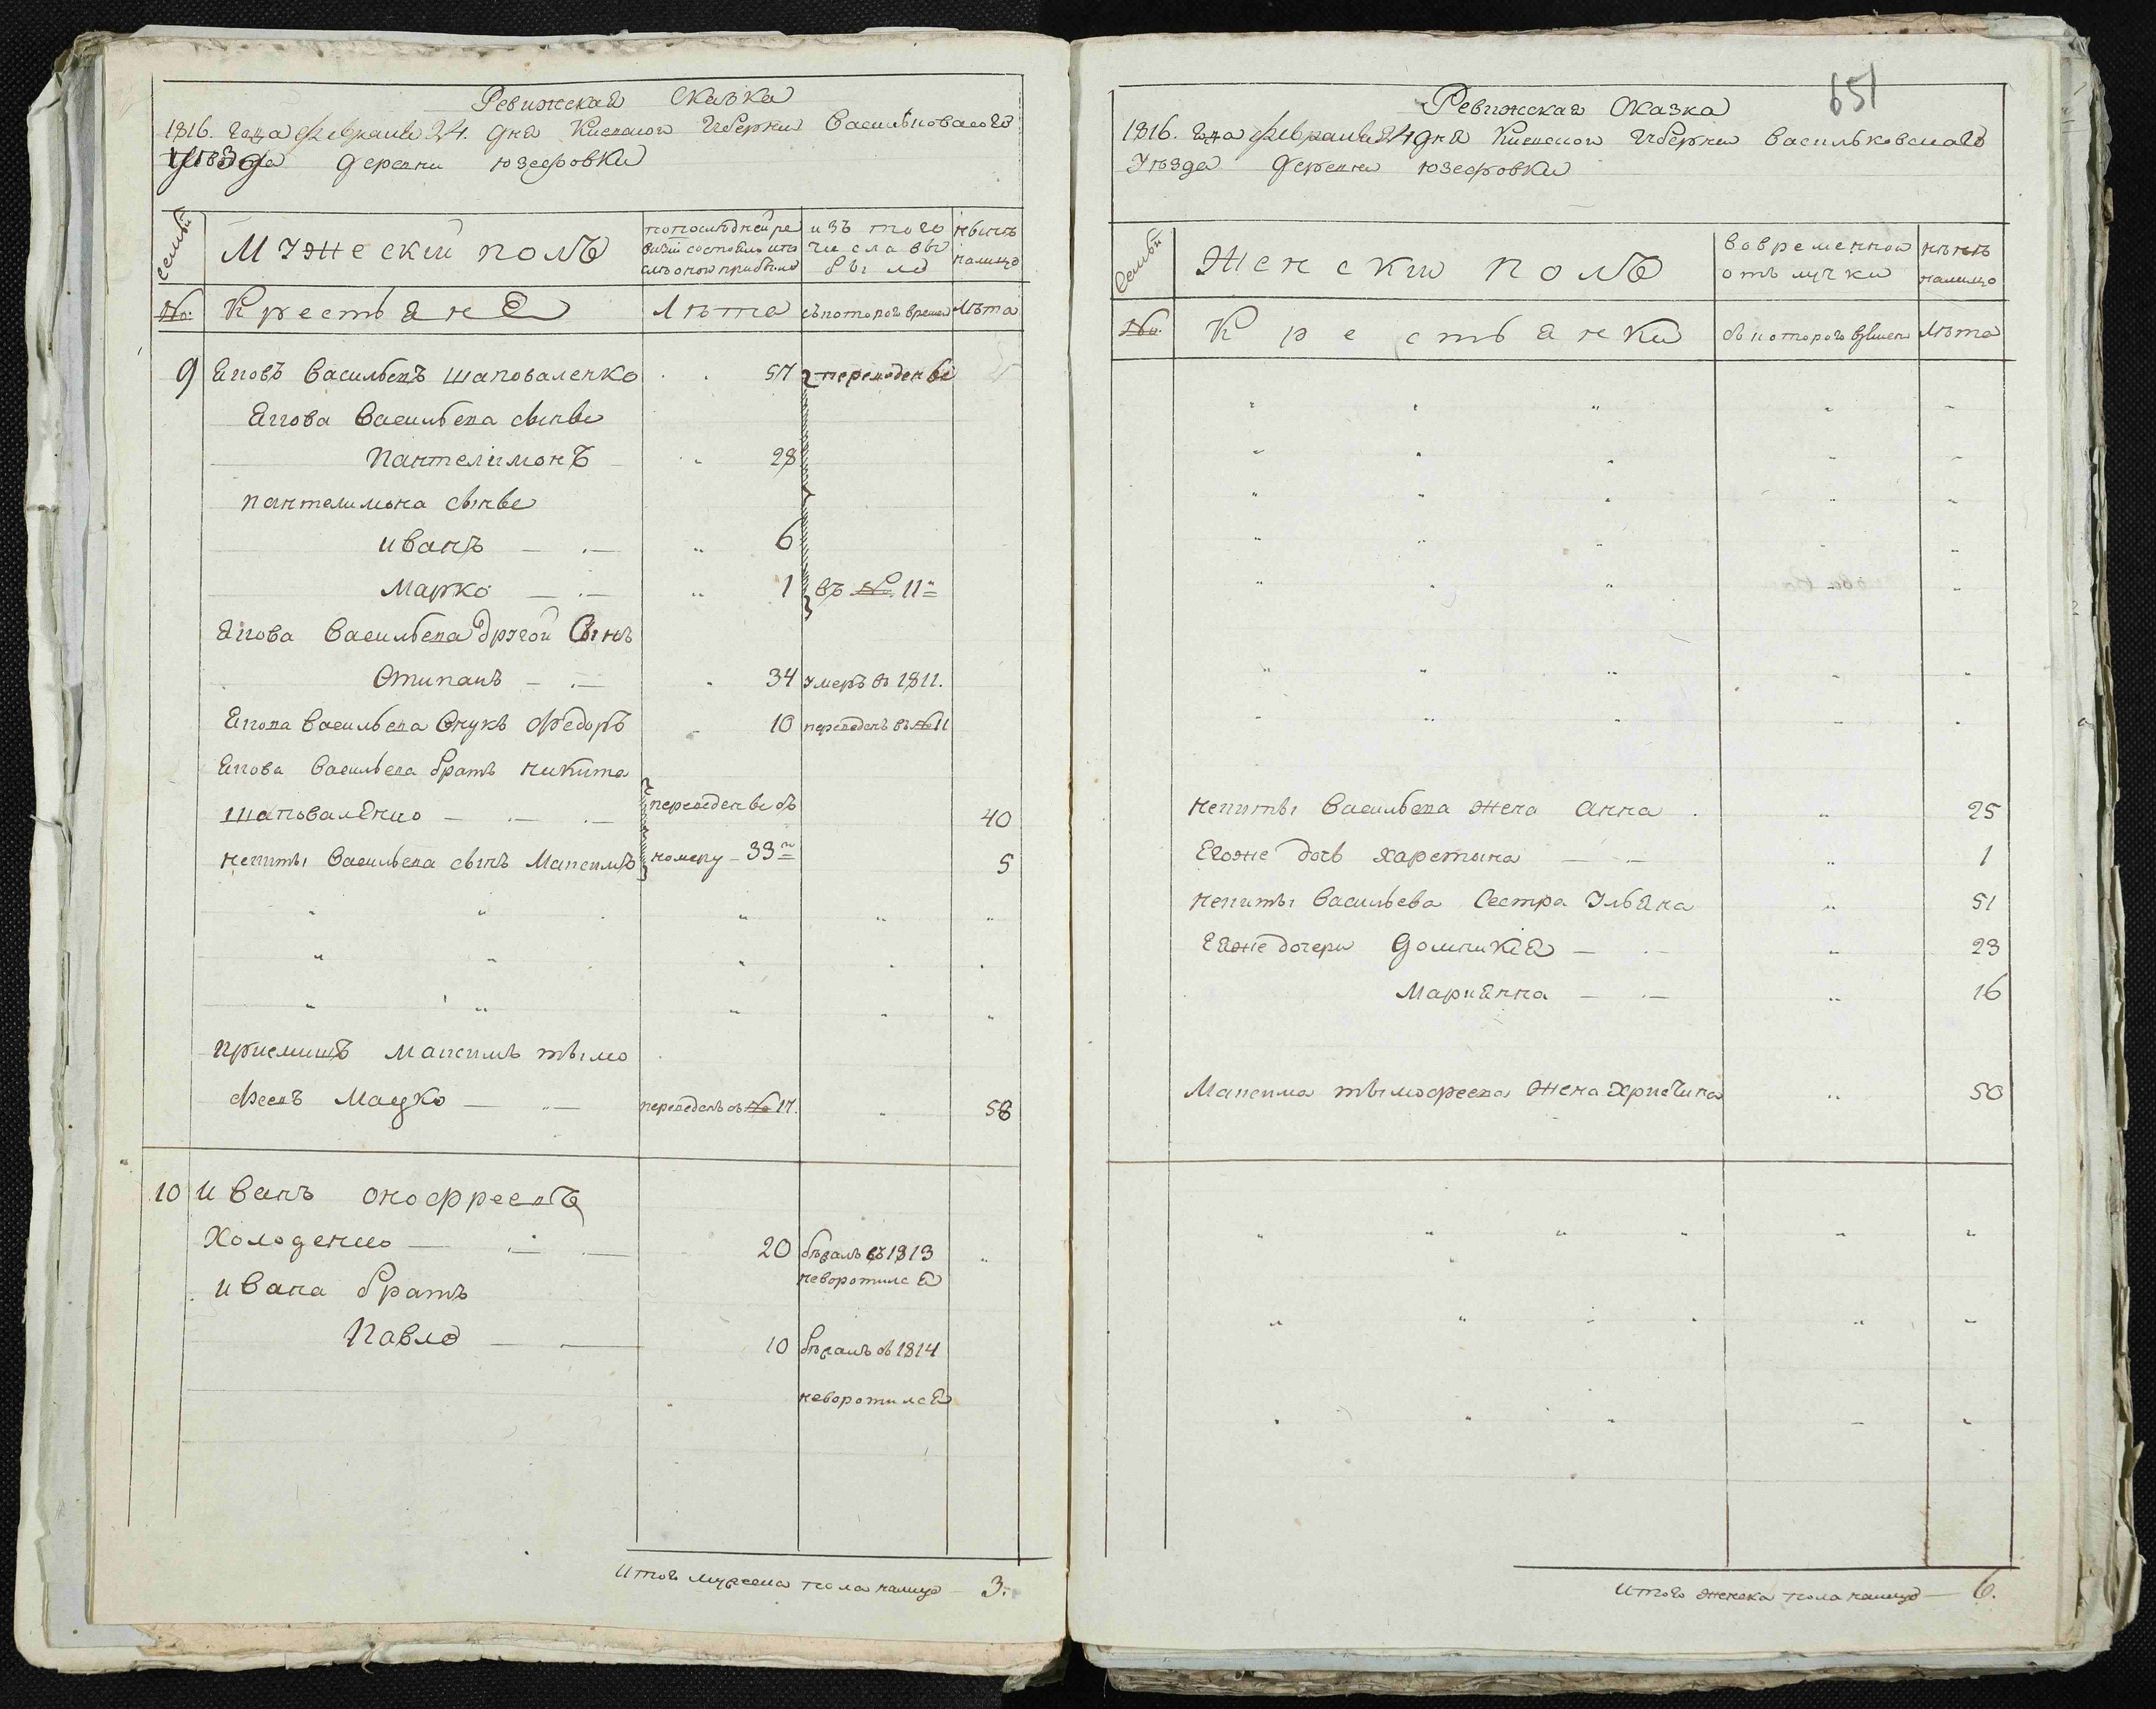 Ревижская Сказка
1816. года февраля 24. дня Киевской Губернии Васильковского
Уѣзда деревни Юзефовки
Семьи
Мужеский полъ
попослѣдней ре
визіи состояло ипо
слѣ оной прибыло
изъ того
числа вы
было
нынѣ
налицо
№. Крестьяне
Лѣта
съкоторого времени
Лѣта
9 Яковъ Васильевъ Шаповаленко 57 переведены
Якова Васильева сынве
Пантелимонъ 28
Пантелимона сынве
Иванъ — .— 6
Марко — .— 1 въ № 11
Якова Васильева другой Сынъ
Стипанъ — .— 34 умеръ въ 1811.
Якова Васильева Внукъ Федоръ 10 переведенъ въ № 11
Якова Васильева братъ Никита
Шаповаленко — .— .— переведены съ 40
Никиты Васильева сынъ Максимъ номеру — 33 5
Приемишъ Максимъ тымо
феевъ Мацко — переведенъ съ № 17. 58
10 Иванъ Онофреевъ
Холоденко — .— .— 20 бѣжалъ въ 1813
неворотился
Ивана братъ
Павло — — 10 бѣжалъ въ 1814
неворотился
Итого мужеска пола налицо — 3.
651
Ревижская Сказка
1816. года февраля 24 дня Киевской Губернии Васильковского
Уѣзда деревни Юзефовки
Семьи
Женский полъ
вовременной
отълучки
нынѣ
налицо
№.
Крестьянки
съкоторого времени
Лѣта
Никиты Васильева жена Анна 25
Егоже дочь Харетына — .— 1
Никиты Васильева Сестра Ульяна 51
Еяже дочери Домникия — .— 23
Марианна — .— 16
Максима тымофеева жена Христина 50
Итого женска пола налицо — 6.